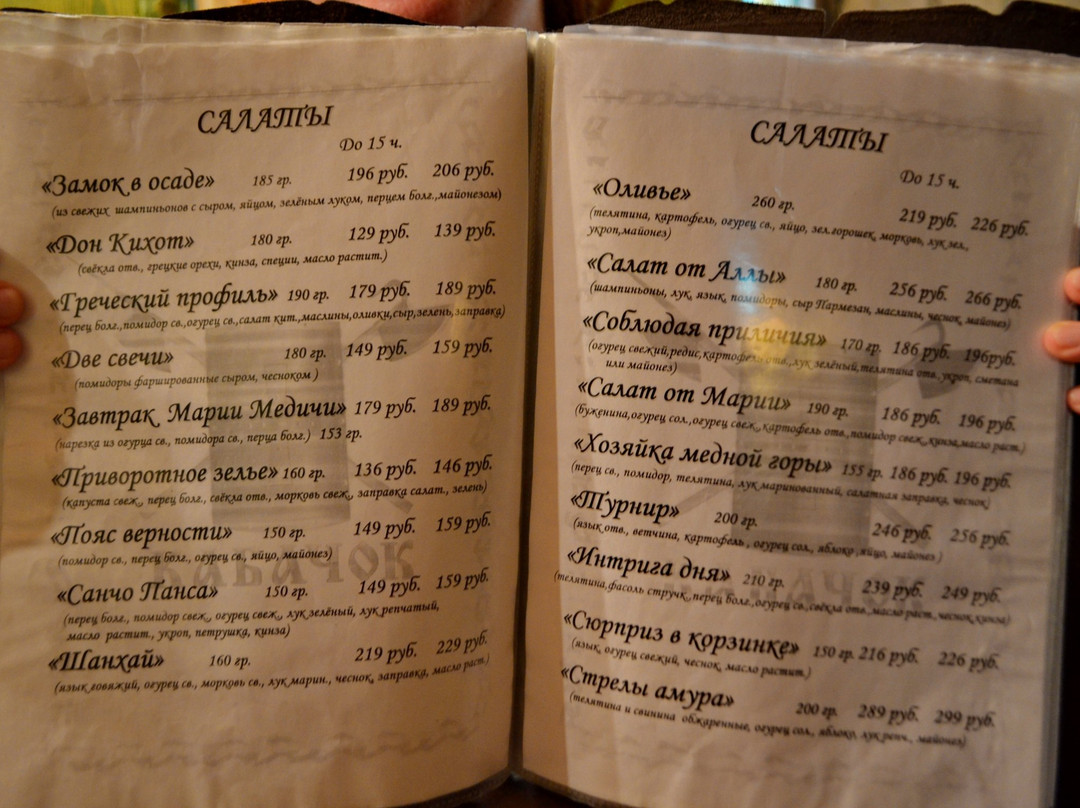 САЛАТЫ
До 15 ч.
«Замок в осаде» 185 гр. 196 руб. 206 руб.
(из свежих шампиньонов с сыром, яйцом, зелёным луком, перцем болг.,майонезом)
«Дон Кихот» 180 гр. 129 руб. 139 руб.
(свёкла отв., грецкие орехи, кинза, специи, масло растит.)
«Греческий профиль» 190 гр. 179 руб. 189 руб.
(перец болг.,помидор св.,огурец св.,салат кит.,маслины,оливки,сыр,зелень,заправка)
«Две свечи» 180 гр. 149 руб. 159 руб.
(помидоры фаршированные сыром, чесноком )
«Завтрак Марии Медичи» 179 руб. 189 руб.
(нарезка из огурца св., помидора св., перца болг.) 153 гр.
«Приворотное зелье» 160 гр. 136 руб. 146 руб.
(капуста свеж., перец болг., свёкла отв., морковь свеж., заправка салат., зелень)
«Пояс верности» 150 гр. 149 руб. 159 руб.
(помидор св., перец болг., огурец св., яйцо, майонез)
«Санчо Панса» 150 гр. 149 руб. 159 руб.
(перец болг., помидор свеж., огурец свеж., лук зелёный, лук репчатый,
масло растит., укроп, петрушка, кинза)
«Шанхай» 160 гр. 219 руб. 229 руб.
(язык говяжий, огурец св., морковь св., лук марин., чеснок, заправка, масло раст.)
САЛАТЫ
До 15 ч.
«Оливье» 260 гр. 219 руб. 226 руб.
(телятина, картофель, огурец св., яйцо, зел.горошек, морковь, лук зел.,
укроп,майонез)
«Салат от Аллы» 180 гр. 256 руб. 266 руб.
(шампиньоны, лук, язык, помидоры, сыр Пармезан, маслины, чеснок, майонез)
«Соблюдая приличия» 170 гр. 186 руб. 196руб.
(огурец свежий,редис,картофель отв.,лук зелёный,телятина отв.,укроп, сметана
или майонез)
«Салат от Марии» 190 гр. 186 руб. 196 руб.
(буженина,огурец сол.,огурец свеж.,картофель отв.,помидор свеж.,кинза,масло раст.)
«Хозяйка медной горы» 155 гр. 186 руб. 196 руб.
(перец св., помидор, телятина, лук маринованный, салатная заправка, чеснок)
«Турнир» 200 гр. 246 руб. 256 руб.
(язык отв., ветчина, картофель , огурец сол., яблоко ,яйцо, майонез )
«Интрига дня» 210 гр. 239 руб. 249 руб.
(телятина,фасоль стручк.,перец болг.,огурец св.,свёкла отв.,масло раст.,чеснок,кинза)
«Сюрприз в корзинке» 150 гр. 216 руб. 226 руб.
(язык, огурец свежий, чеснок, масло растит.)
«Стрелы амура» 200 гр. 289 руб. 299 руб.
(телятина и свинина обжаренные, огурец сол., яблоко, лук репч., майонез)